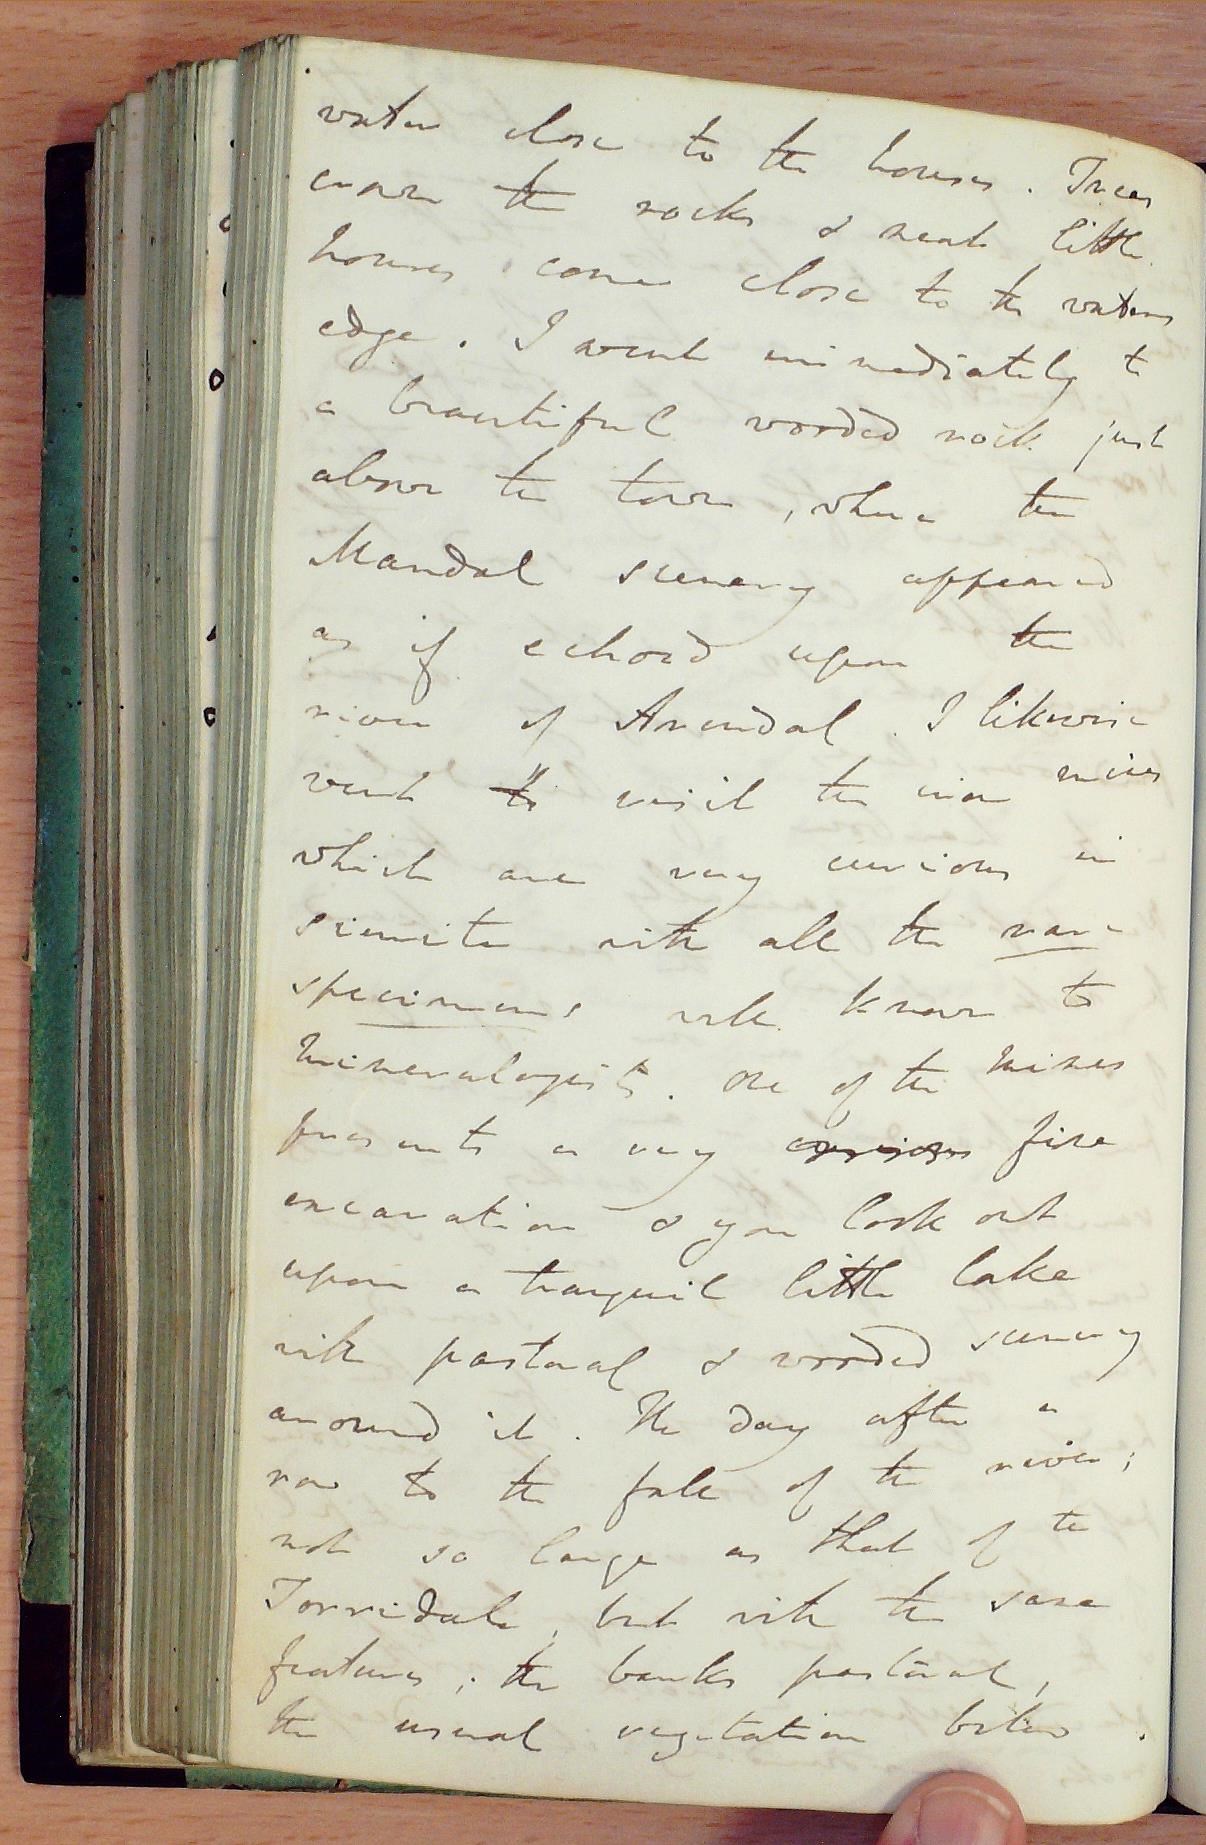 water close to the houses. Trees
crown the rocks & neat little
houses come close to the waters
edge. I went immediately to
a beautiful wooded rock just
above the town, where the
Mandal scenery appeared
as if echoed upon the
river of Arendal. I likewise
went to visit the iron mines
which are very curious in
sienite with all the rare
specimens well known to
Mineralogists. One of the mines
presents a very curious fine
excavation & you look out
upon a tranquil little lake
with pastoral & wooded scenery
around it. The day after a
row to the fall of the river;
not so large as that of the
Torridale, but with the same
features; the banks pastoral,
the usual vegetation below.